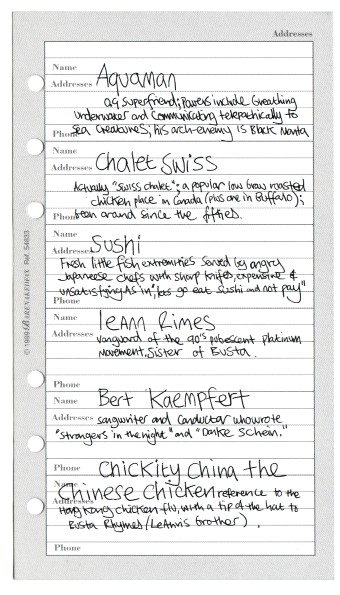 Addresses
Name Aquaman
Addresses
a.q. Superfriend; Powers include Breathing
underwater and Communicating telepathically to
Phone sea creatures; his arch-enemy is Black Manta
Name
Addresses Chalet Swiss
Actually "Swiss Chalet"; a popular low brow roasted
chicken place in Canada (plus one in Buffalo);
Phone been around since the fifties.
Name
Addresses Sushi
Fresh little fish extremities served by angry
Japanese chefs with sharp knifes, expensive &
unsatisfying. As in "lets go eat sushi and not pay"
Phone
Name
Addresses leAnn Rimes
vanguard of the 90's pubescent platinum
movement, sister of Busta.
Phone
Name Bert Kaempfert
Addresses songwriter and conductor who wrote
"strangers in the night" and "Danke Schein."
Phone
Name Chickity China the
Addresses Chinese Chicken reference to the
Hong Kong chicken flu, with a tip of the hat to
Busta Rhymes (LeAnn's brother).
Phone
© 1999 BARENAKEDFAX Ref. 54833